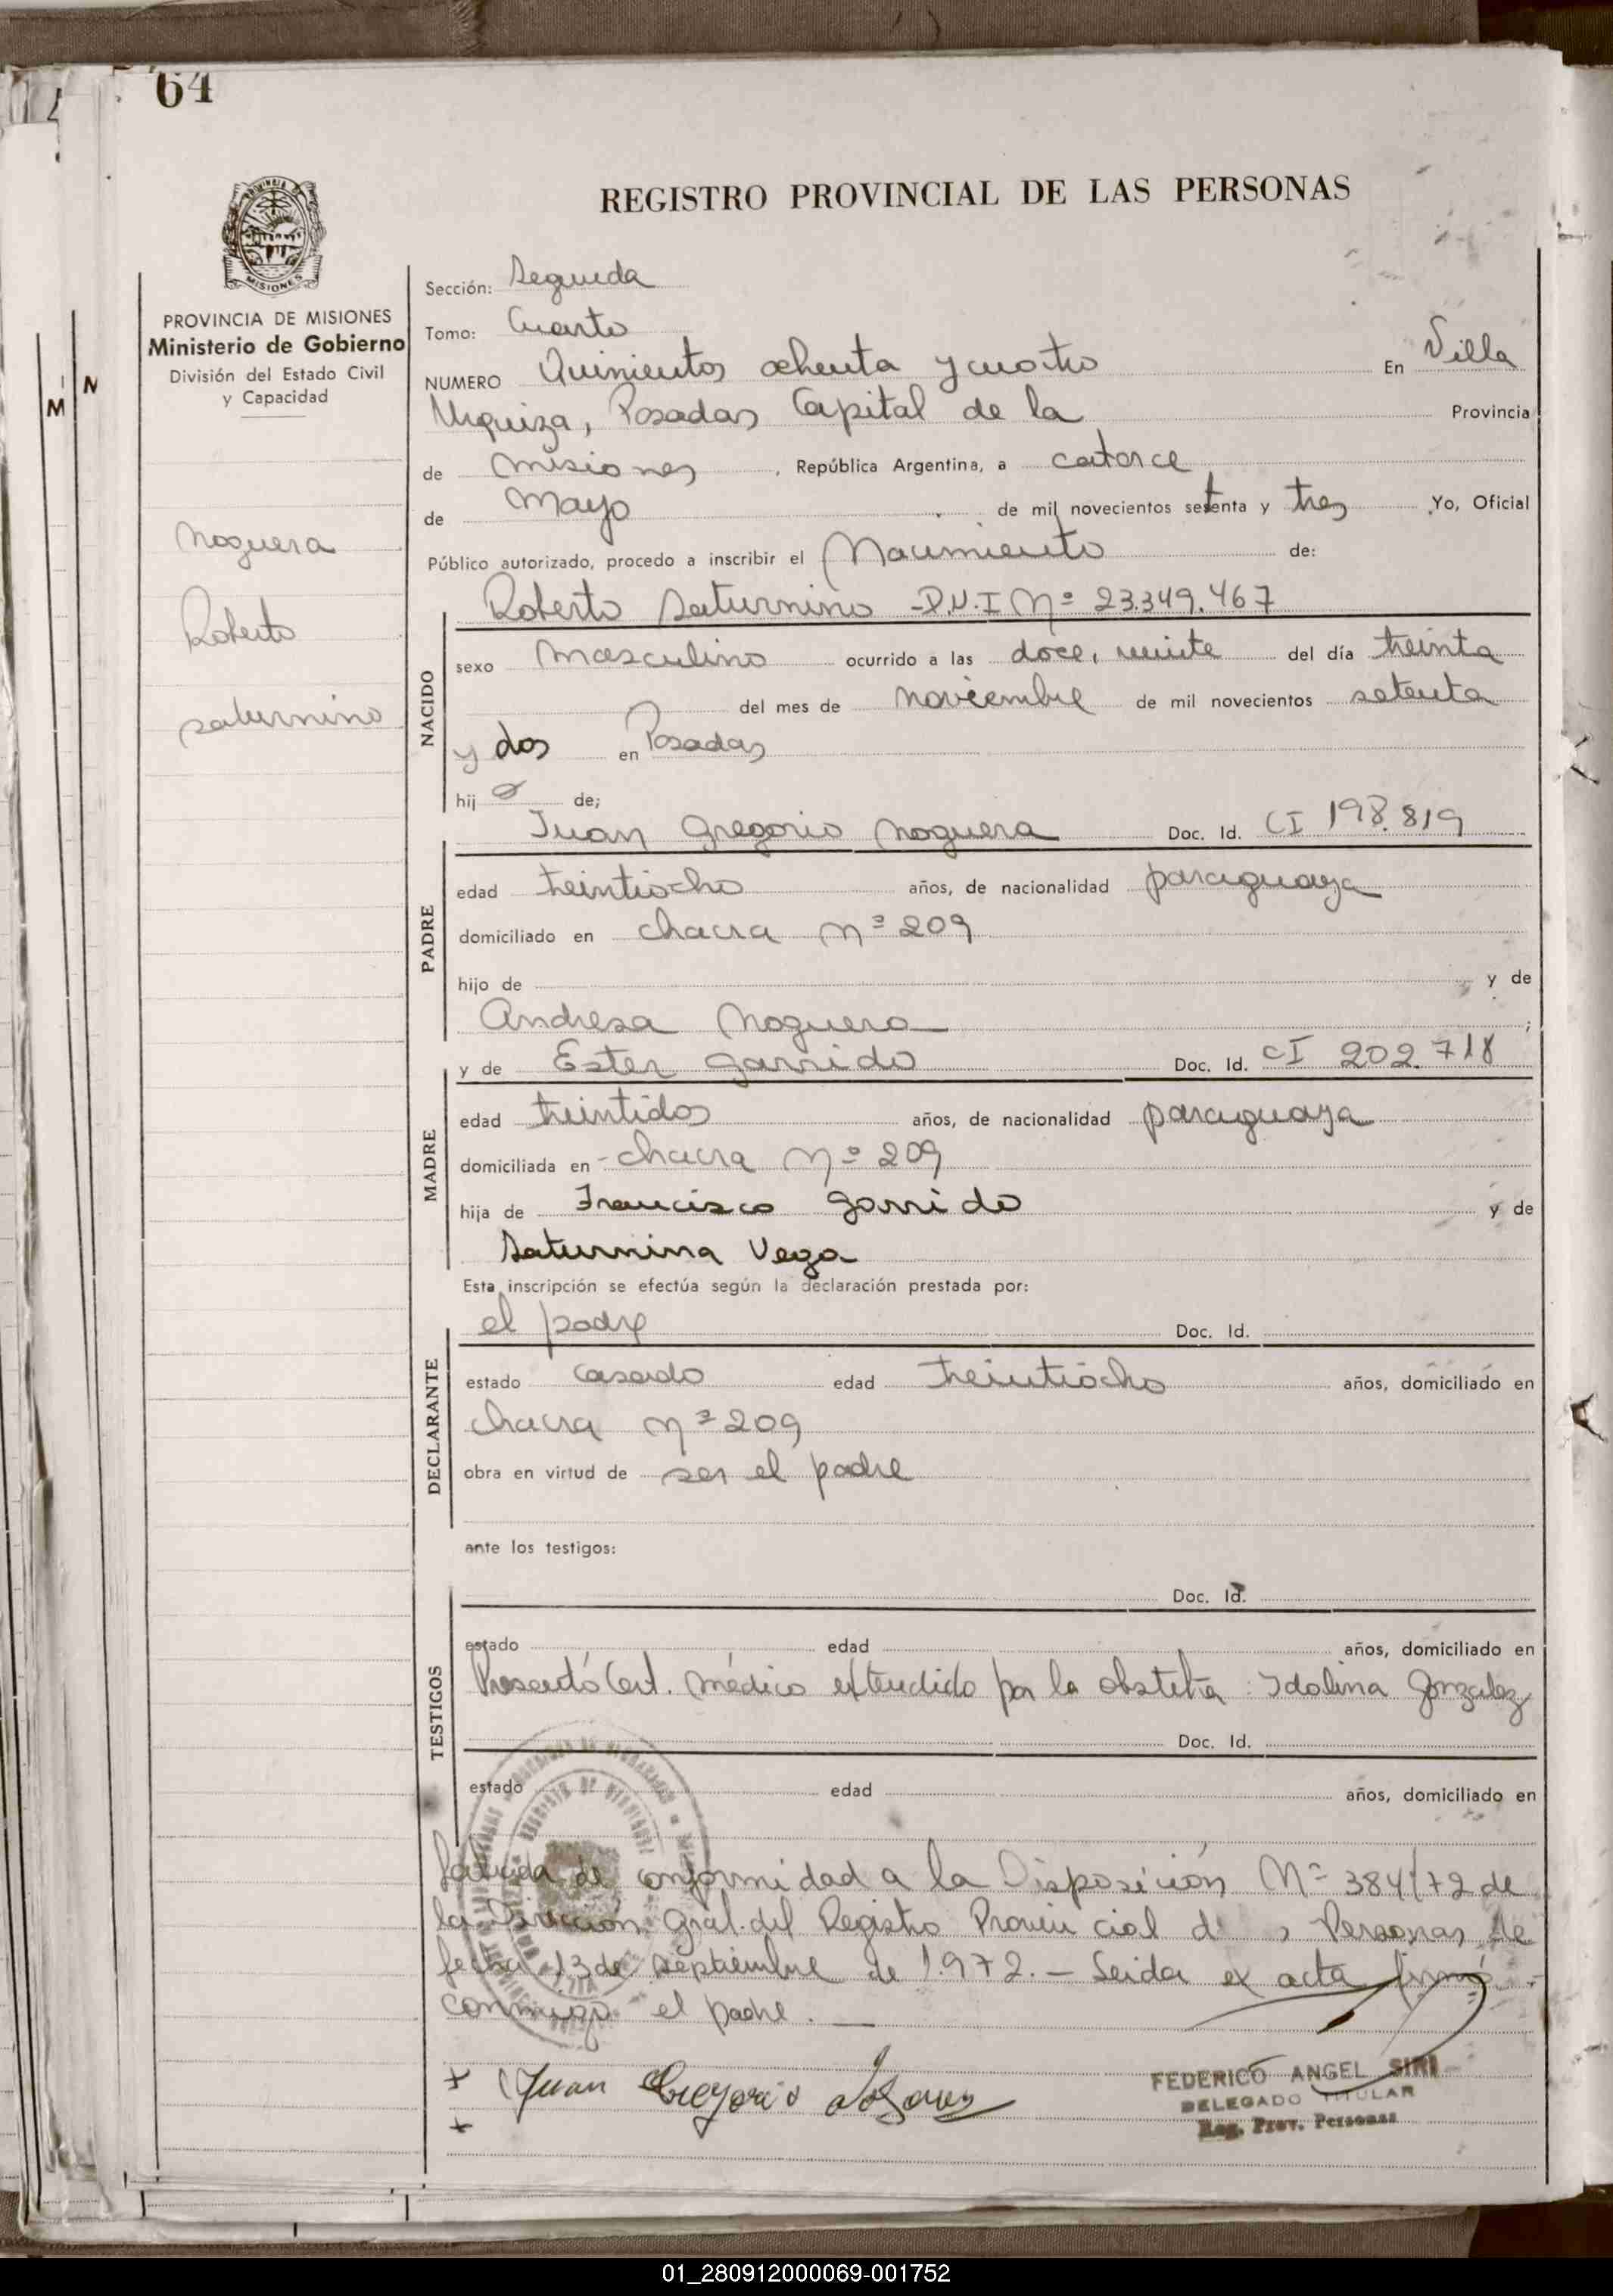 64
REGISTRO PROVINCIAL DE LAS PERSONAS
MISIONES
PROVINCIA DE MISIONES
Ministerio de Gobierno
División del Estado Civil
y Capacidad
Noguera
Roberto
Saturnino
Sección: Segunda
Tomo: Cuarto
NUMERO Quinientos ochenta y cuatro En Villa
Urquiza, Posadas Capital de la Provincia
de Misiones, República Argentina, a catorce
de Mayo de mil novecientos setenta y tres Yo, Oficial
Público autorizado, procedo a inscribir el Nacimiento de:
Roberto Saturnino - D.N.I Nº 23.349.467
NACIDO
sexo Masculino ocurrido a las doce, veinte del día treinta
del mes de noviembre de mil novecientos setenta
y dos en Posadas
hijo de;
Juan Gregorio Noguera Doc. Id. CI 198.819
PADRE
edad treintiocho años, de nacionalidad paraguaya
domiciliado en chacra Nº 209
hijo de y de
Andresa Noguera ;
y de Ester Garrido Doc. Id. CI 202.718
MADRE
edad treintidos años, de nacionalidad paraguaya
domiciliada en - chacra Nº 209
hija de Francisco Garrido y de
Saturnina Vega
Esta inscripción se efectúa según la declaración prestada por:
el padre Doc. Id.
DECLARANTE
estado casado edad treintiocho años, domiciliado en
chacra Nº 209
obra en virtud de ser el padre
ante los testigos:
Doc. Id.
TESTIGOS
estado edad años, domiciliado en
Presentó Cert. Médico extendido por la obstetra: Idolina Gonzalez
Doc. Id.
estado edad años, domiciliado en
de conformidad a la Disposición Nº 384/72 de
la Dirección Gral. del Registro Provincial d Personas de
fecha 13 de septiembre de 1.972. - Leida el acta firmó
conmigo el padre. —
x Juan Gregorio
x
FEDERICO ANGEL SIRI
DELEGADO TITULAR
Reg. Prov. Personas
01_280912000069-001752